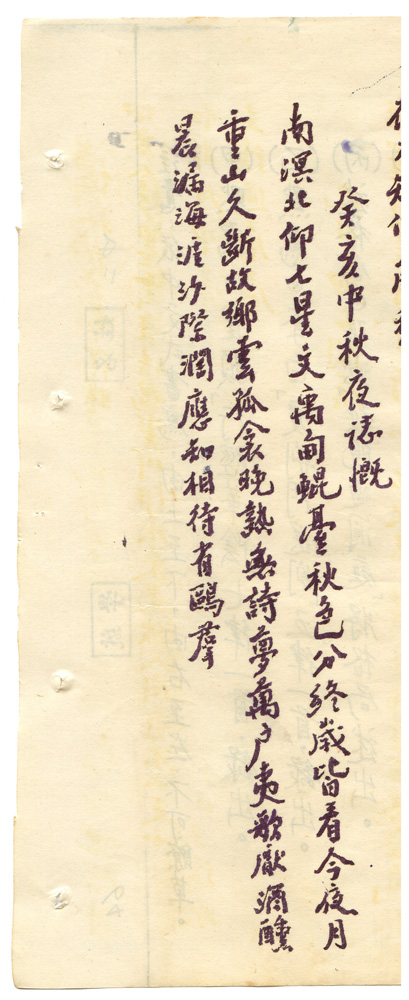 癸亥中秋夜誌慨
南溟北仰七星文禹甸鯤臺秋色分終歲皆看今夜月
重山久斷故鄉雲孤衾晚熟無詩夢萬戶夷歌厭酒醺
晨漏海涯沙際濶應知相待有鷗羣